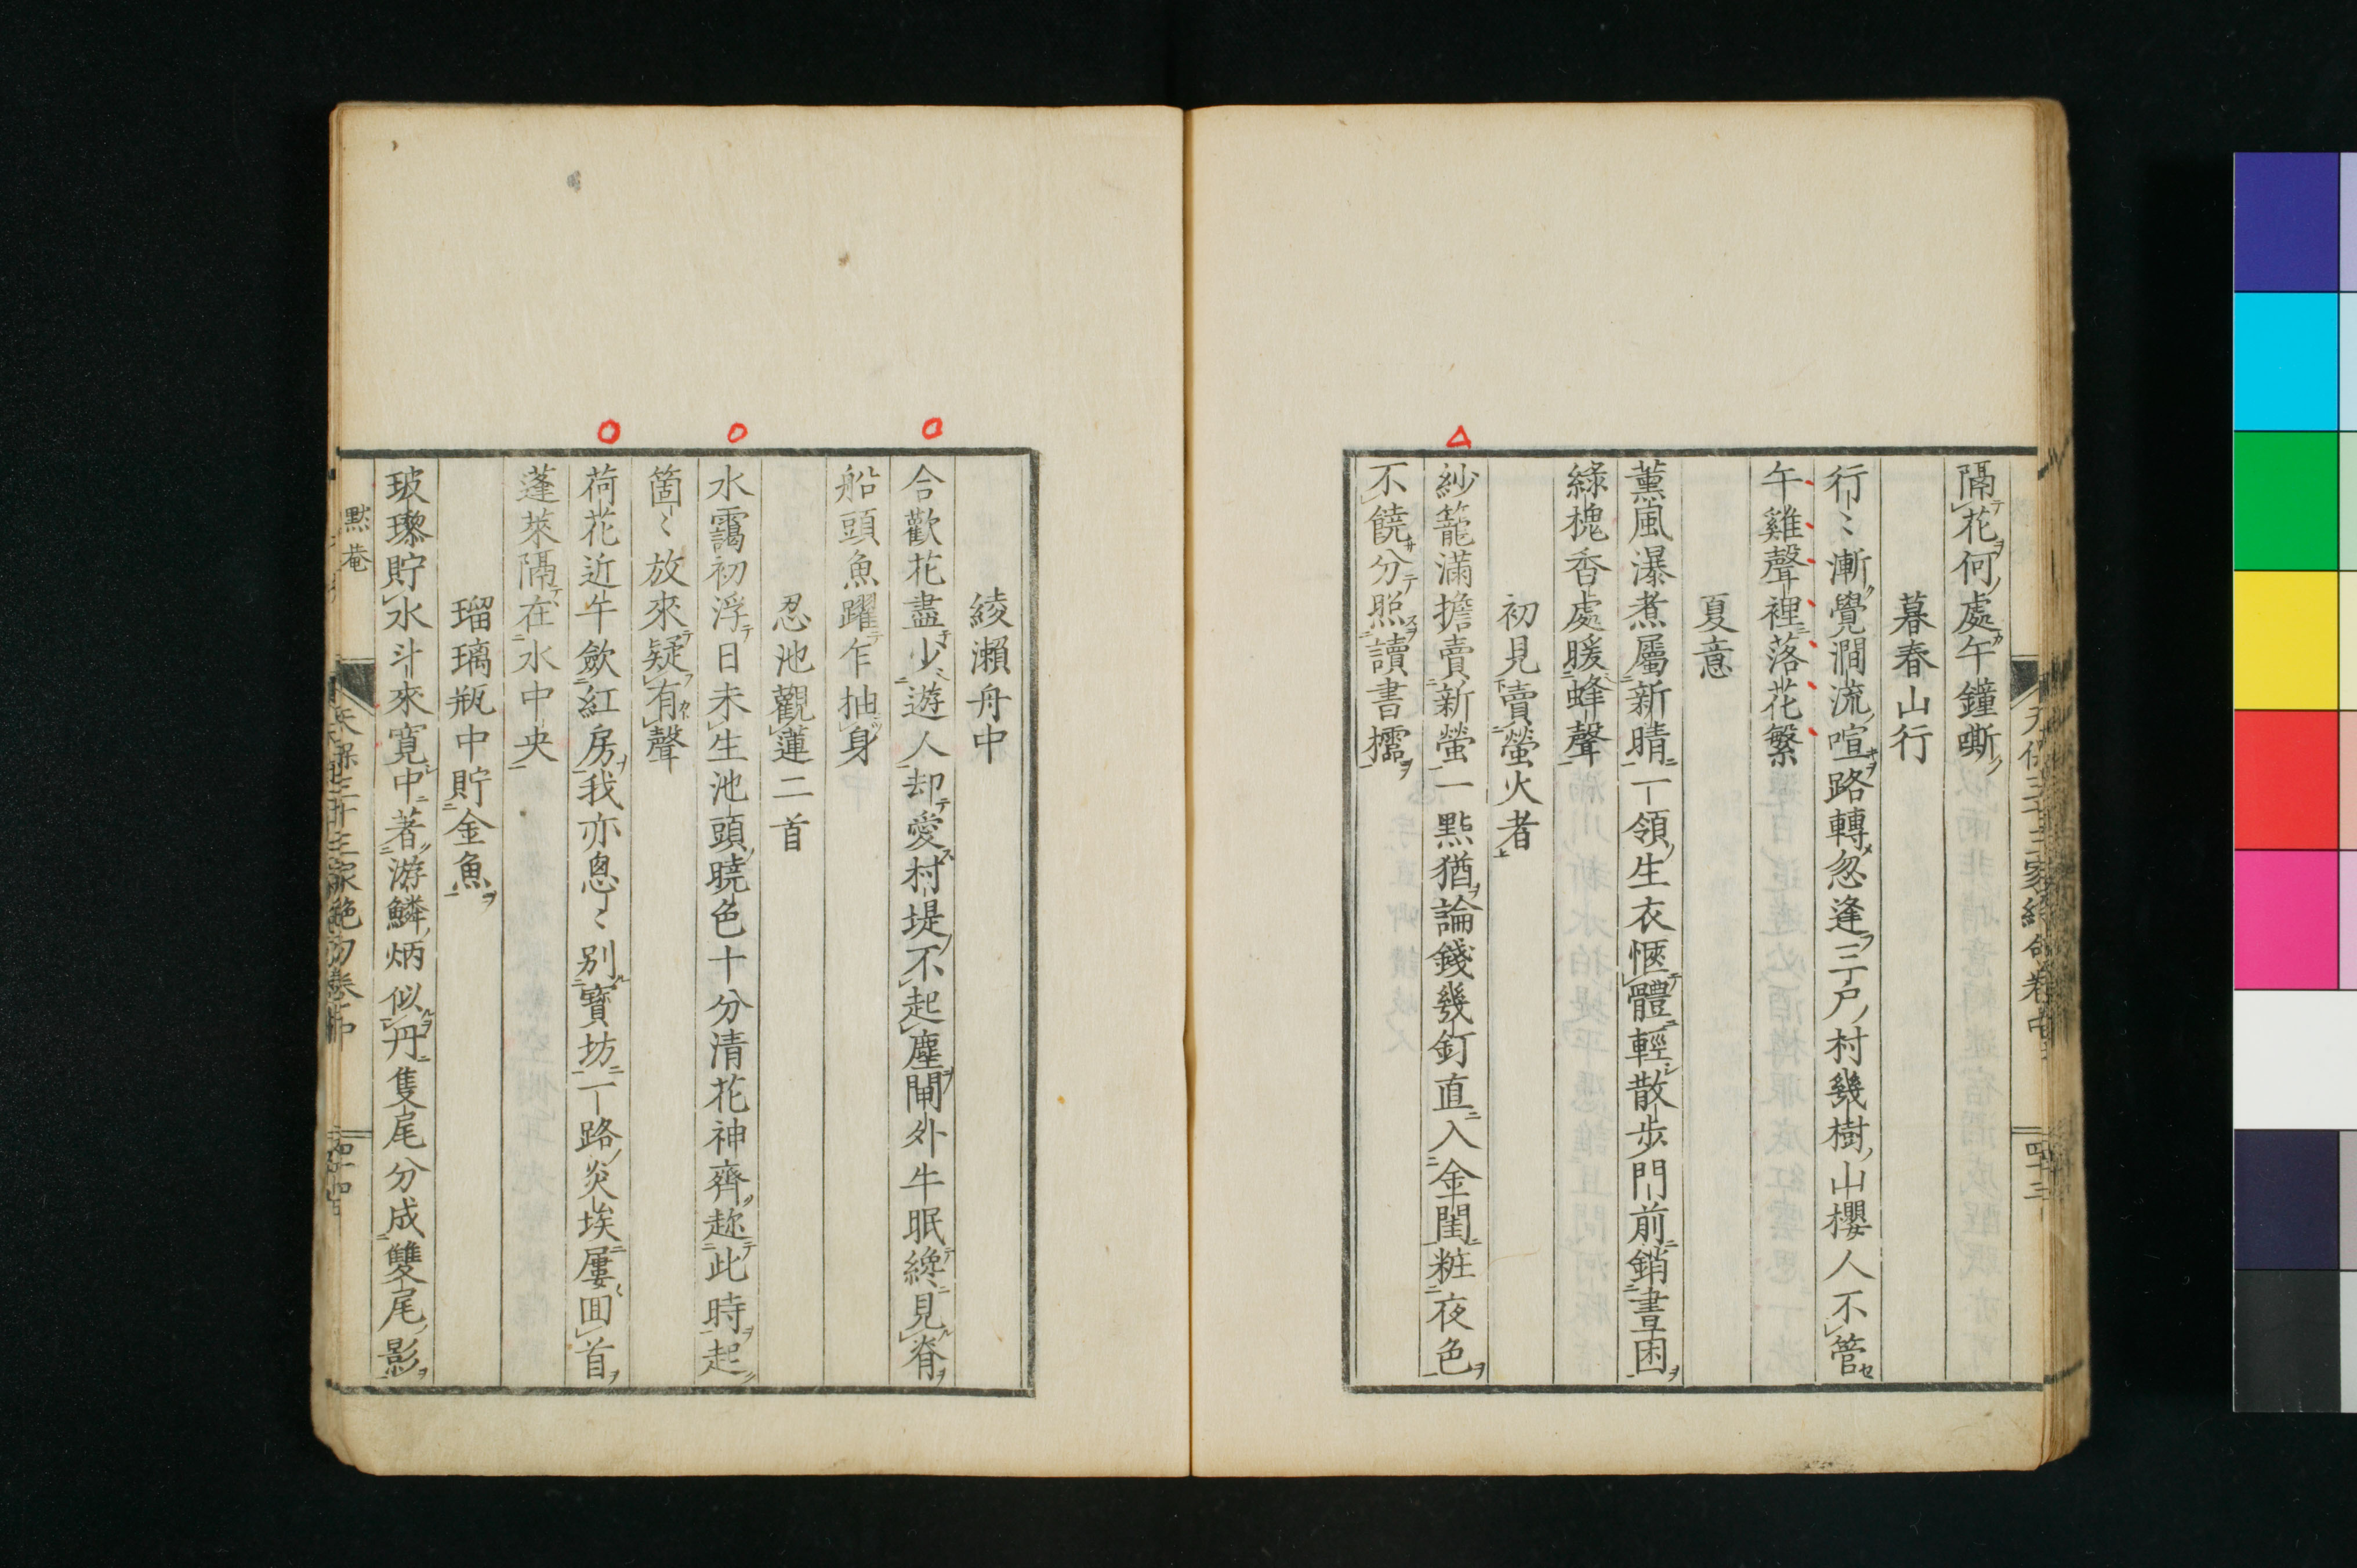 隔花何處午鐘嘶
暮春山行
行〻漸覺澗流喧路轉忽逢三戸村幾樹山櫻人不管
午雞聲裡落花繁
夏意
薫風瀑煮屬新晴一領生衣愜體輕散步門前銷晝困
綠槐香處暖蜂聲
初見賣螢火者
紗籠滿擔賣新螢一點猶論錢幾釘直入金閨粧夜色
不饒分照讀書檽
綾瀬舟中
合歡花盡少遊人却愛村堤不起塵閘外牛眠纔見脊
船頭魚躍乍抽身
忍池觀蓮二首
水靄初浮日未生池頭曉色十分清花神齊趂此時起
箇〻放來疑有聲
荷花近午斂紅房我亦悤〻別寶坊一路炎埃屢囬首
蓬萊隔在水中央
瑠璃瓶中貯金魚
玻瓈貯水斗來寬中著游鱗炳似丹隻尾分成雙尾影
默菴